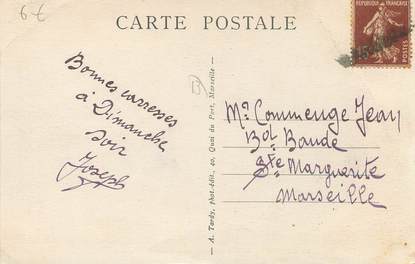 6€
CARTE POSTALE
RÉPUBLIQUE FRANÇAISE
POSTES
Bonnes carresses
à Dimanche
soir
Joseph
A. Tardy, phot-édit., 40, Quai du Port, Marseille
Mr Commenge Jean
Bd Baude
Ste Marguerite
Marseille